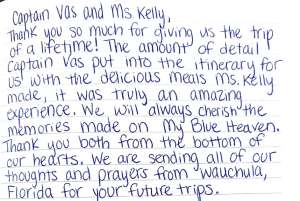 Captain Vas and Ms. Kelly,
Thank you so much for giving us the trip
of a lifetime! The amount of detail
Captain Vas put into the itinerary for
us with the delicious meals Ms. Kelly
made, it was truly an amazing
experience. We will always cherish the
memories made on My Blue Heaven.
Thank you both from the bottom of
our hearts. We are sending all of our
thoughts and prayers from Wauchula,
Florida for your future trips.